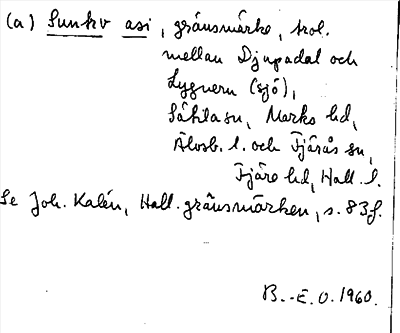 (a) Sunkv asi, gränsmärke, trol.
mellan Djupadal och
Lygnern (sjö),
Sätila sn, Marks hd,
Älvsb. l. och Fjärås sn,
Fjäre hd, Hall. l.
Se Joh. Kalén, Hall. gränsmärken, s. 83 f.
B.-E. O. 1960.